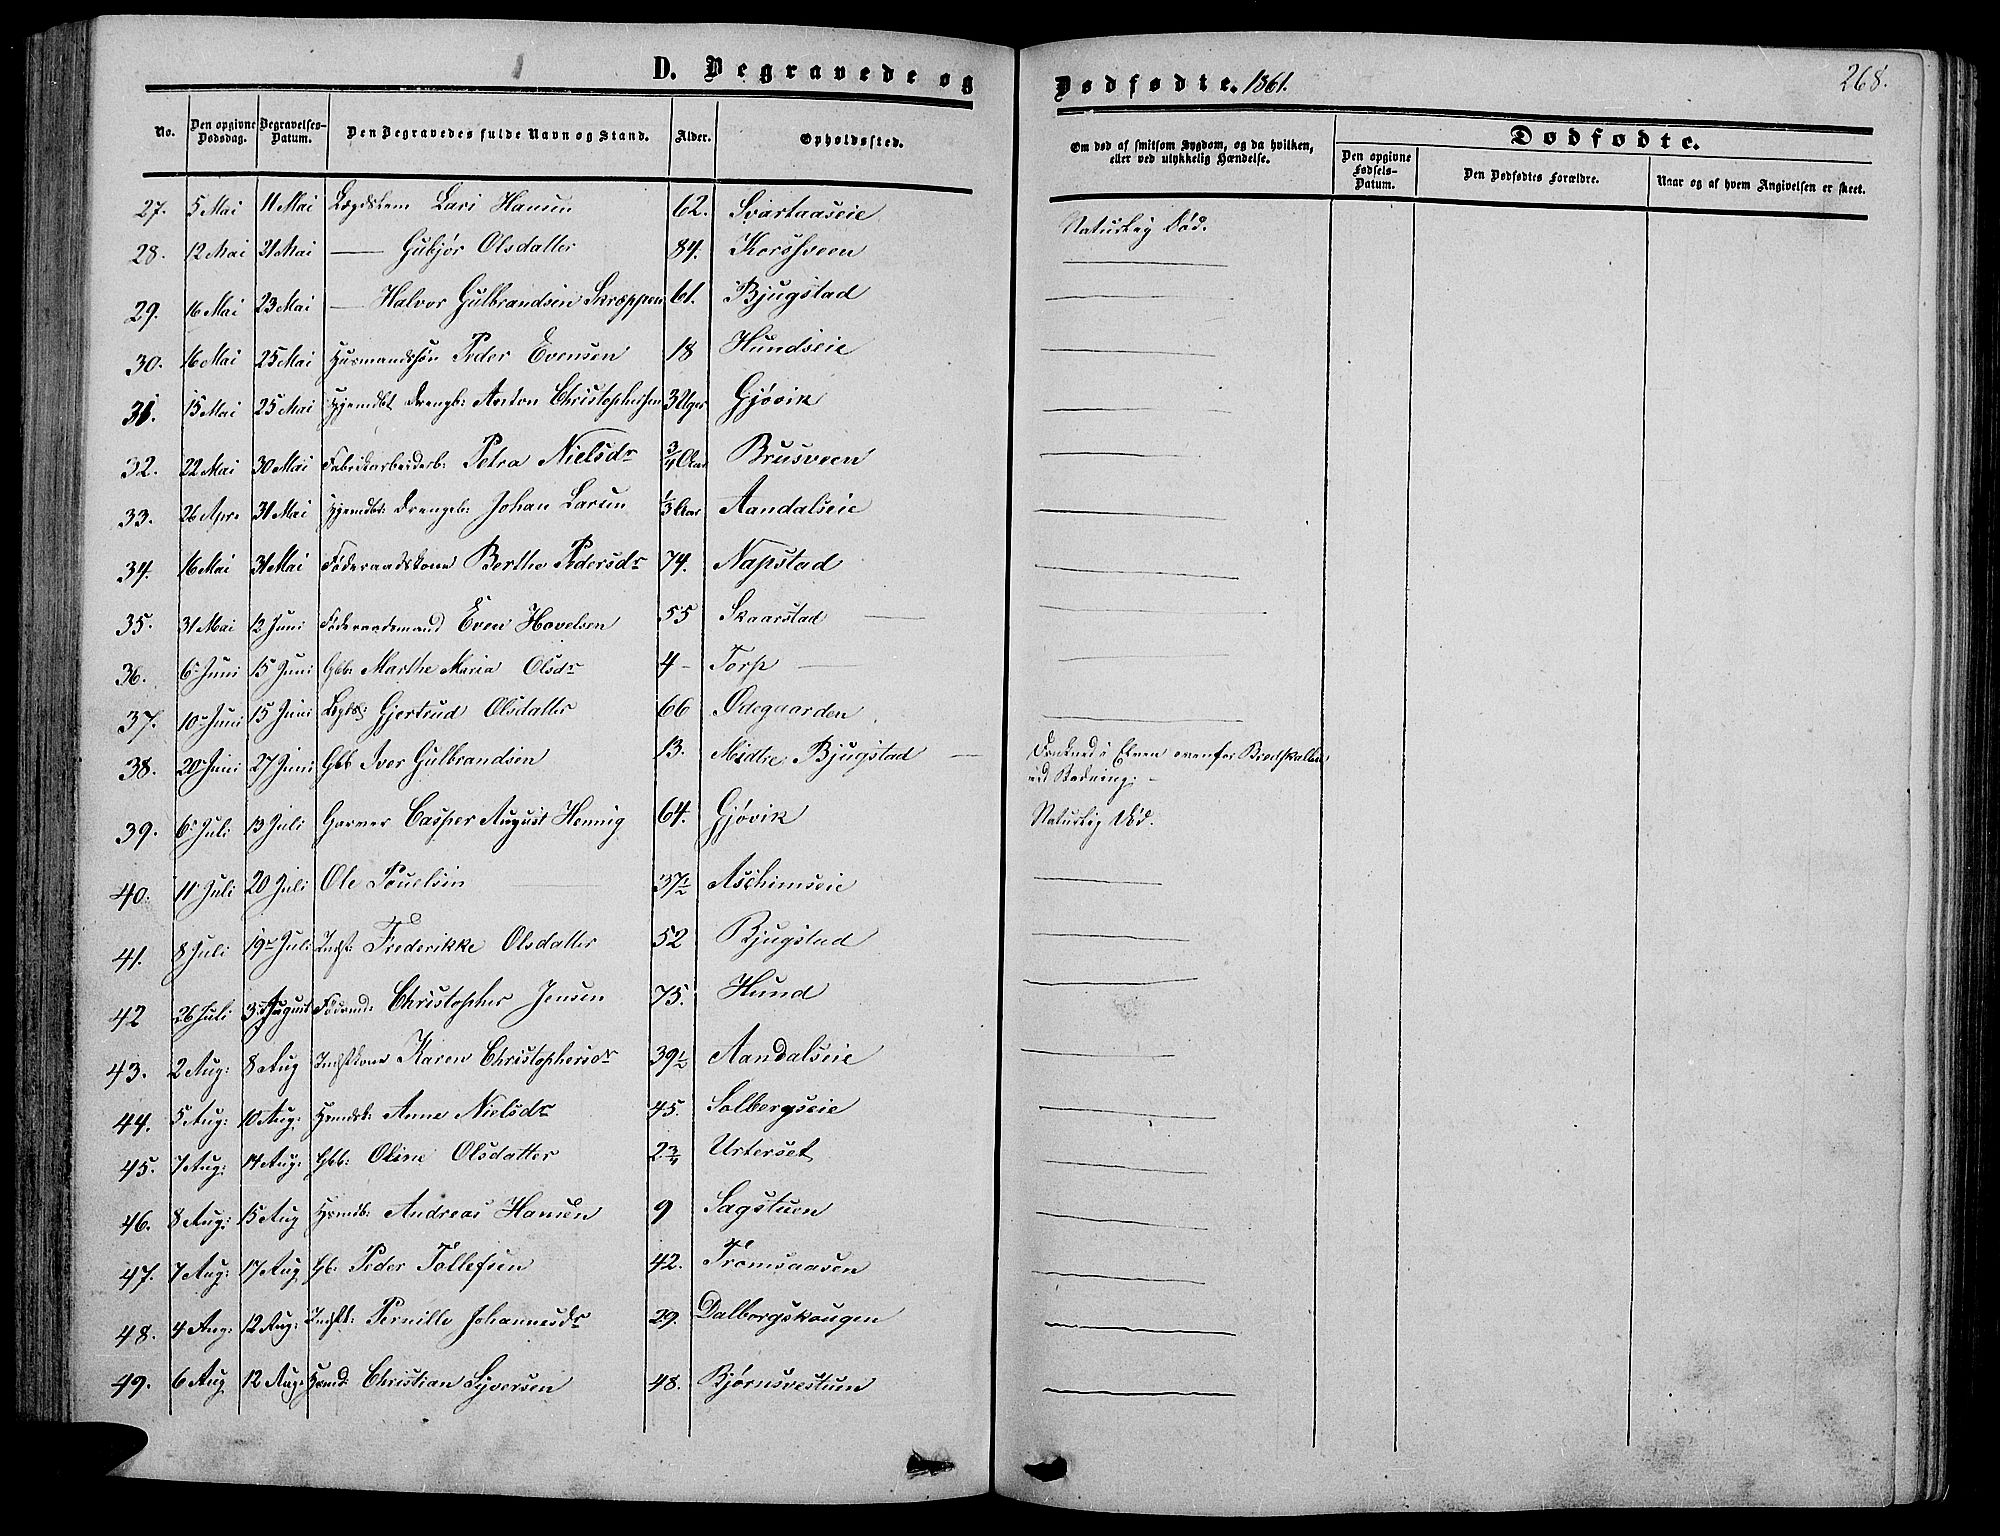 D. Begravede og Dødfødte. 1861.
268.
No. Den opgivne Dødsdag. Begravelses-Datum. Den Begravedes fulde Navn og Stand. Alder. Opholdssted. Om død af smitsom Sygdom, og da hvilken, eller ved ulykkelig Hændelse. Dødfødte.
Den opgivne Fødsels-Datum. Den Dødfødtes Forældre. Naar og af hvem Angivelsen er skeet.
27. 5 Mai 11 Mai Lægdslem Lars Hansen 62. Svartaaseie Naturlig Død.
28. 12 Mai 21 Mai — Gubjør Olsdatter 84. Korshveen —
29. 16 Mai 23 Mai — Halvor Gulbrandsen Skræppen 61. Bjugstad —
30. 16 Mai 25 Mai Husmandssøn Peder Evensen 18 Hundseie —
31. 15 Mai 25 Mai Hjemdbt Drengb: Anton Christophersen 3 Uger Gjøvik —
32. 22 Mai 30 Mai Fabrikarbeiderb: Petra Nielsdr 3/4 Aar Brusveen —
33. 26 Apr. 31 Mai Hjemdbt Drengeb: Johan Larsen 1/3 Aar Aandalseie —
34. 16 Mai 31 Mai Føderaadskone Berthe Pedersdr 74. Napstad —
35. 31 Mai 12 Juni Føderaadsmand Even Hovelsen 55 Skaarstad — —
36. 6 Juni 15 Juni Gbb: Marthe Maria Olsdr 4 - Torp — —
37. 10 Juni 15 Juni Lægdsl: Gjertrud Olsdatter 66 Ødegaarden —
38. 20 Juni 27 Juni Gbb Iver Gulbrandsen 13. Midtre Bjugstad — Druknede i Elven ovenfor Bredskallen
ved Badning: -
39. 6 Juli 13 Juli Garver Casper August Hennig 64. Gjøvik Naturlig Død.
40. 11 Juli 20 Juli Ole Pouelsen — 37 1/2 Aschimseie —
41. 8 Juli 19 Juli Indst: Frederikke Olsdatter 52 Bjugstad —
42 26 Juli 3 August Fødermd: Christopher Jensen 75. Hund —
43. 2 Aug: 8 Aug Indstkone Karen Christophersdr 39 1/2 Aandalseie —
44. 5 Aug: 10 Aug: Hsmdsk: Anne Nielsdr 45. Solbergseie —
45. 7 Aug: 14 Aug: Gbb: Oline Olsdatter 2 3/4 Usterset —
46. 8 Aug: 15 Aug Hsmdb: Andreas Hansen 9 Sagstuen —
47. 7 Aug: 17 Aug Gb: Peder Tollefsen 42. Tromsaasen —
48. 4 Aug: 12 Aug: Indstk: Pernille Johannesdr 29. Dalborgshougen —
49. 6 Aug 12 Aug. Hsmd: Christian Syversen 48. Bjørnsvestuen —